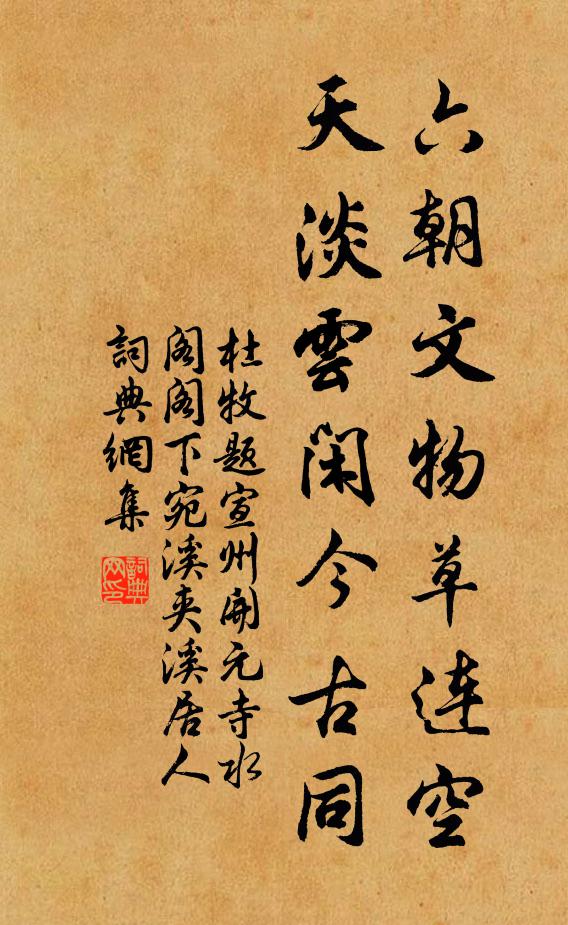 六朝文物草連空
天淡雲閑今古同
杜牧題宣州開元寺水
阁阁下宛溪夹溪居人
詞典網集
詞典
网印